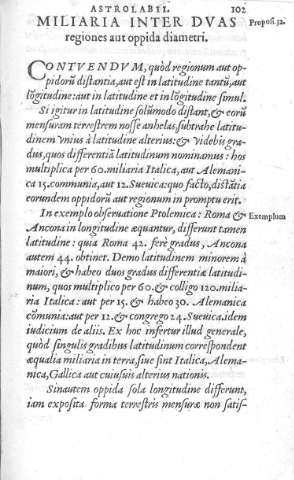 ASTROLABII. 102
MILIARIA INTER DVAS Proposi.32.
regiones aut oppida diametri.
CONTVENDVM, quòd regionum aut op-
pidorũ distantia, aut est in latitudine tantũ, aut
lõgitudine: aut in latitudine et in lõgitudine simul.
Si igitur in latitudine solũmodo distant, & eorũ
mensuram terrestrem nosse anhelas, subtrahe latitu-
dinem vnius à latitudine alterius: & videbis gra-
dus, quos differentiã latitudinum nominamus: hos
multiplica per 60. miliaria Italica, aut Alemani-
ca 15. communia, aut 12. Sueuica: quo facto, distãtia
eorundem oppidorũ aut regionum in promptu erit.
In exemplo obseruatione Ptolemica: Roma & Exemplum
Ancona in longitudine æquantur, differunt tamen
latitudine: quia Roma 42. ferè gradus, Ancona
autem 44. obtinet. Demo latitudinem minorem à
maiori, & habeo duos gradus differentiæ latitudi-
num, quos multiplico per 60. & colligo 120. milia-
ria Italica: aut per 15. & habeo 30. Alemanica
cõmunia: aut per 12. & congrego 24. Sueuica. idem
iudicium de aliis. Ex hoc infertur illud generale,
quòd singulis gradibus latitudinum correspondent
æqualia miliaria in terra, siue sint Italica, Alema-
nica, Gallica aut cuiusuis alterius nationis.
Sinautem oppida sola longitudine differunt,
iam exposita forma terrestris mensuræ non satis-